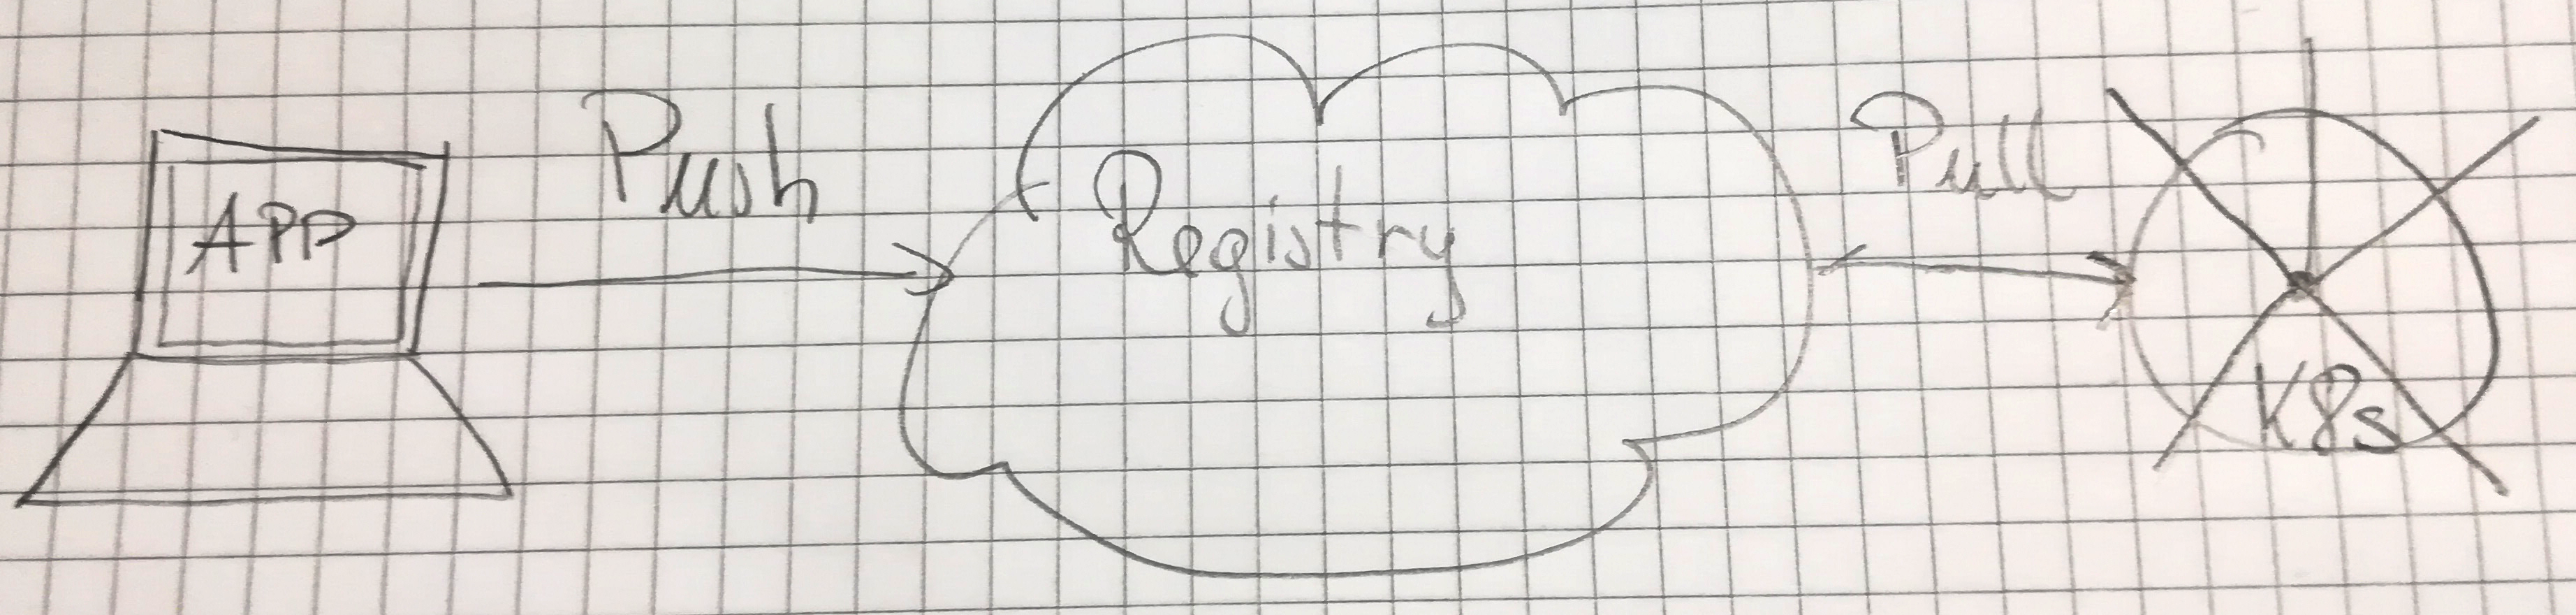 APP
Push
Registry
Pull
K8s